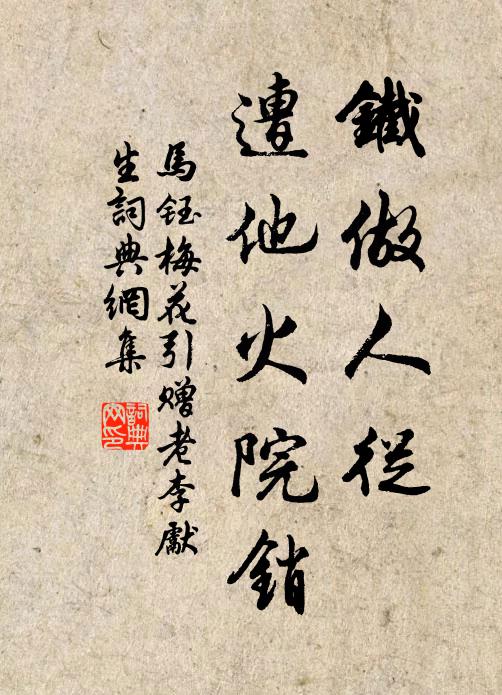 鐵做人從
遭他火院銷
馬鈺梅花引贈老李獻
生詞典網集
詞典
网印